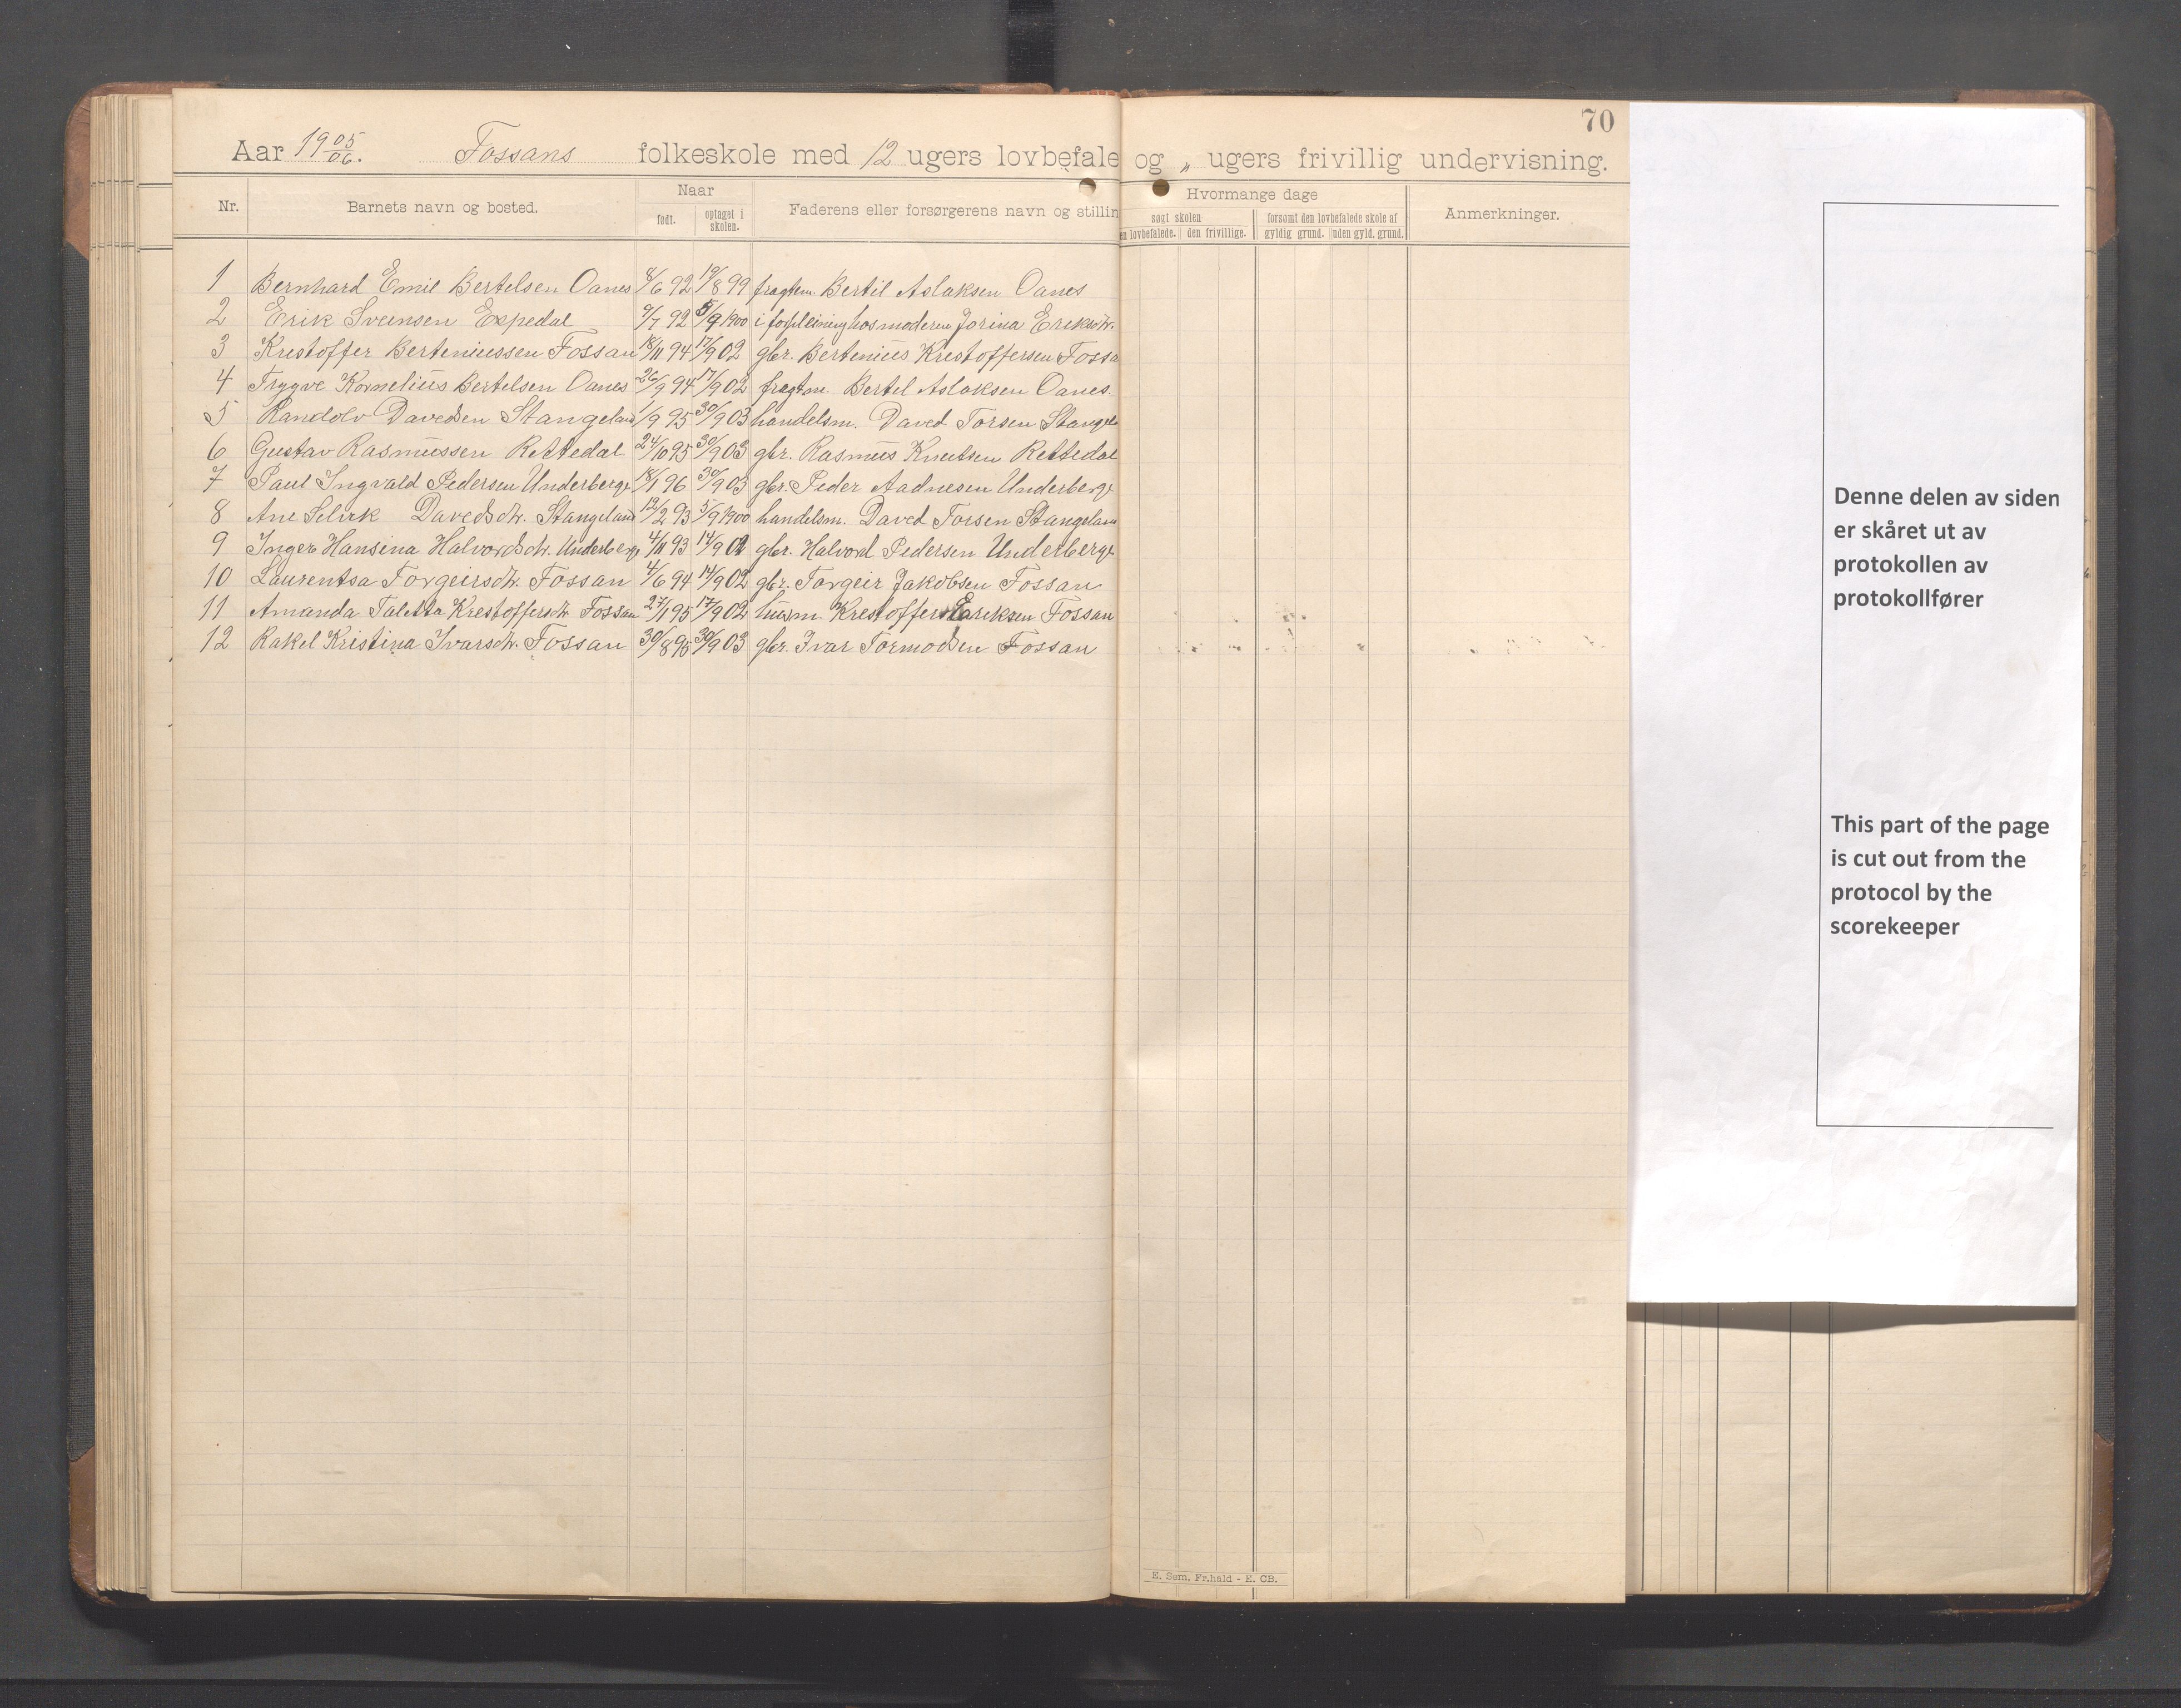 70
Aar 1905/06. Fossans folkeskole med 12 ugers lovbefale og „ ugers frivillig undervisning.
Nr. Barnets navn og bosted. Naar født. optaget i skolen. Faderens eller forsørgerens navn og stillin Hvormange dage søgt skolen en lovbefalede. den frivillige. forsømt den lovbefalede skole af gyldig grund. uden gyld. grund. Anmerkninger.
1 Bernhard Emil Bertelsen Oanes 8/6 92 19/8 99 fragtem. Bertil Aslaksen Oanes
2 Erik Sveinsen Espedal 9/7 92 5/9 1900 i forpleining hos moderen Jorina Eriksdtr.
3 Krestoffer Berteniussen Fossan 18/11 94 17/9 02 gbr. Bertenius Krestoffersen Fossa
4 Trygve Kornelius Bertelsen Oanes 26/9 94 17/9 02 fragtm. Bertel Aslaksen Oanes.
5 Randolv Davedsen Stangeland 1/9 95 30/9 03 handelsm. Daved Torsen Stangela
6 Gustav Rasmussen Rettedal 24/10 95 30/9 03 gbr. Rasmus Knutsen Rettedal
7 Paul Ingvald Pedersen Underberge 18/1 96 30/9 03 gbr. Peder Aadnesen Underberge
8 Ane Davedsdtr. Stangeland 12/2 93 5/9 1900 handelsm. Daved Torsen Stangelan
9 Inger Hansina Halvordsdtr. Underberge 4/11 93 14/9 01 gbr. Halvord Pedersen Underberge
10 Laurentsa Torgeirsdtr. Fossan 4/6 94 14/9 02 gbr. Torgeir Jakobsen Fossan
11 Amanda Taletta Krestoffersdtr. Fossan 27/1 95 17/9 02 husm. Krestoffer Eriksen Fossan
12 Rakel Kristina Ivarsdtr. Fossan 30/8 96 30/9 03 gbr. Ivar Tormodsen Fossan
E. Sem, Fr.hald - E. CB.
Denne delen av siden
er skåret ut av
protokollen av
protokollfører
This part of the page
is cut out from the
protocol by the
scorekeeper